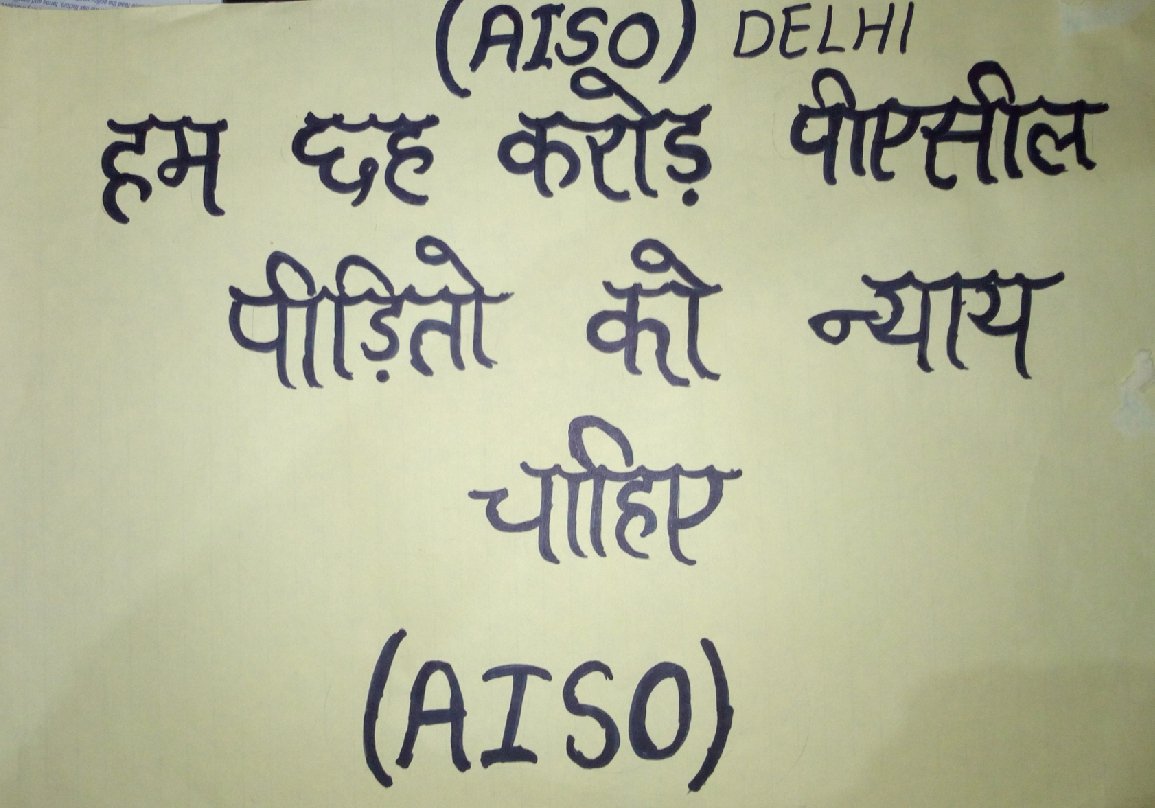 (AISO) DELHI
हम छह करोड़ पीएसील
पीड़ितो को न्याय
चाहिए
(AISO)